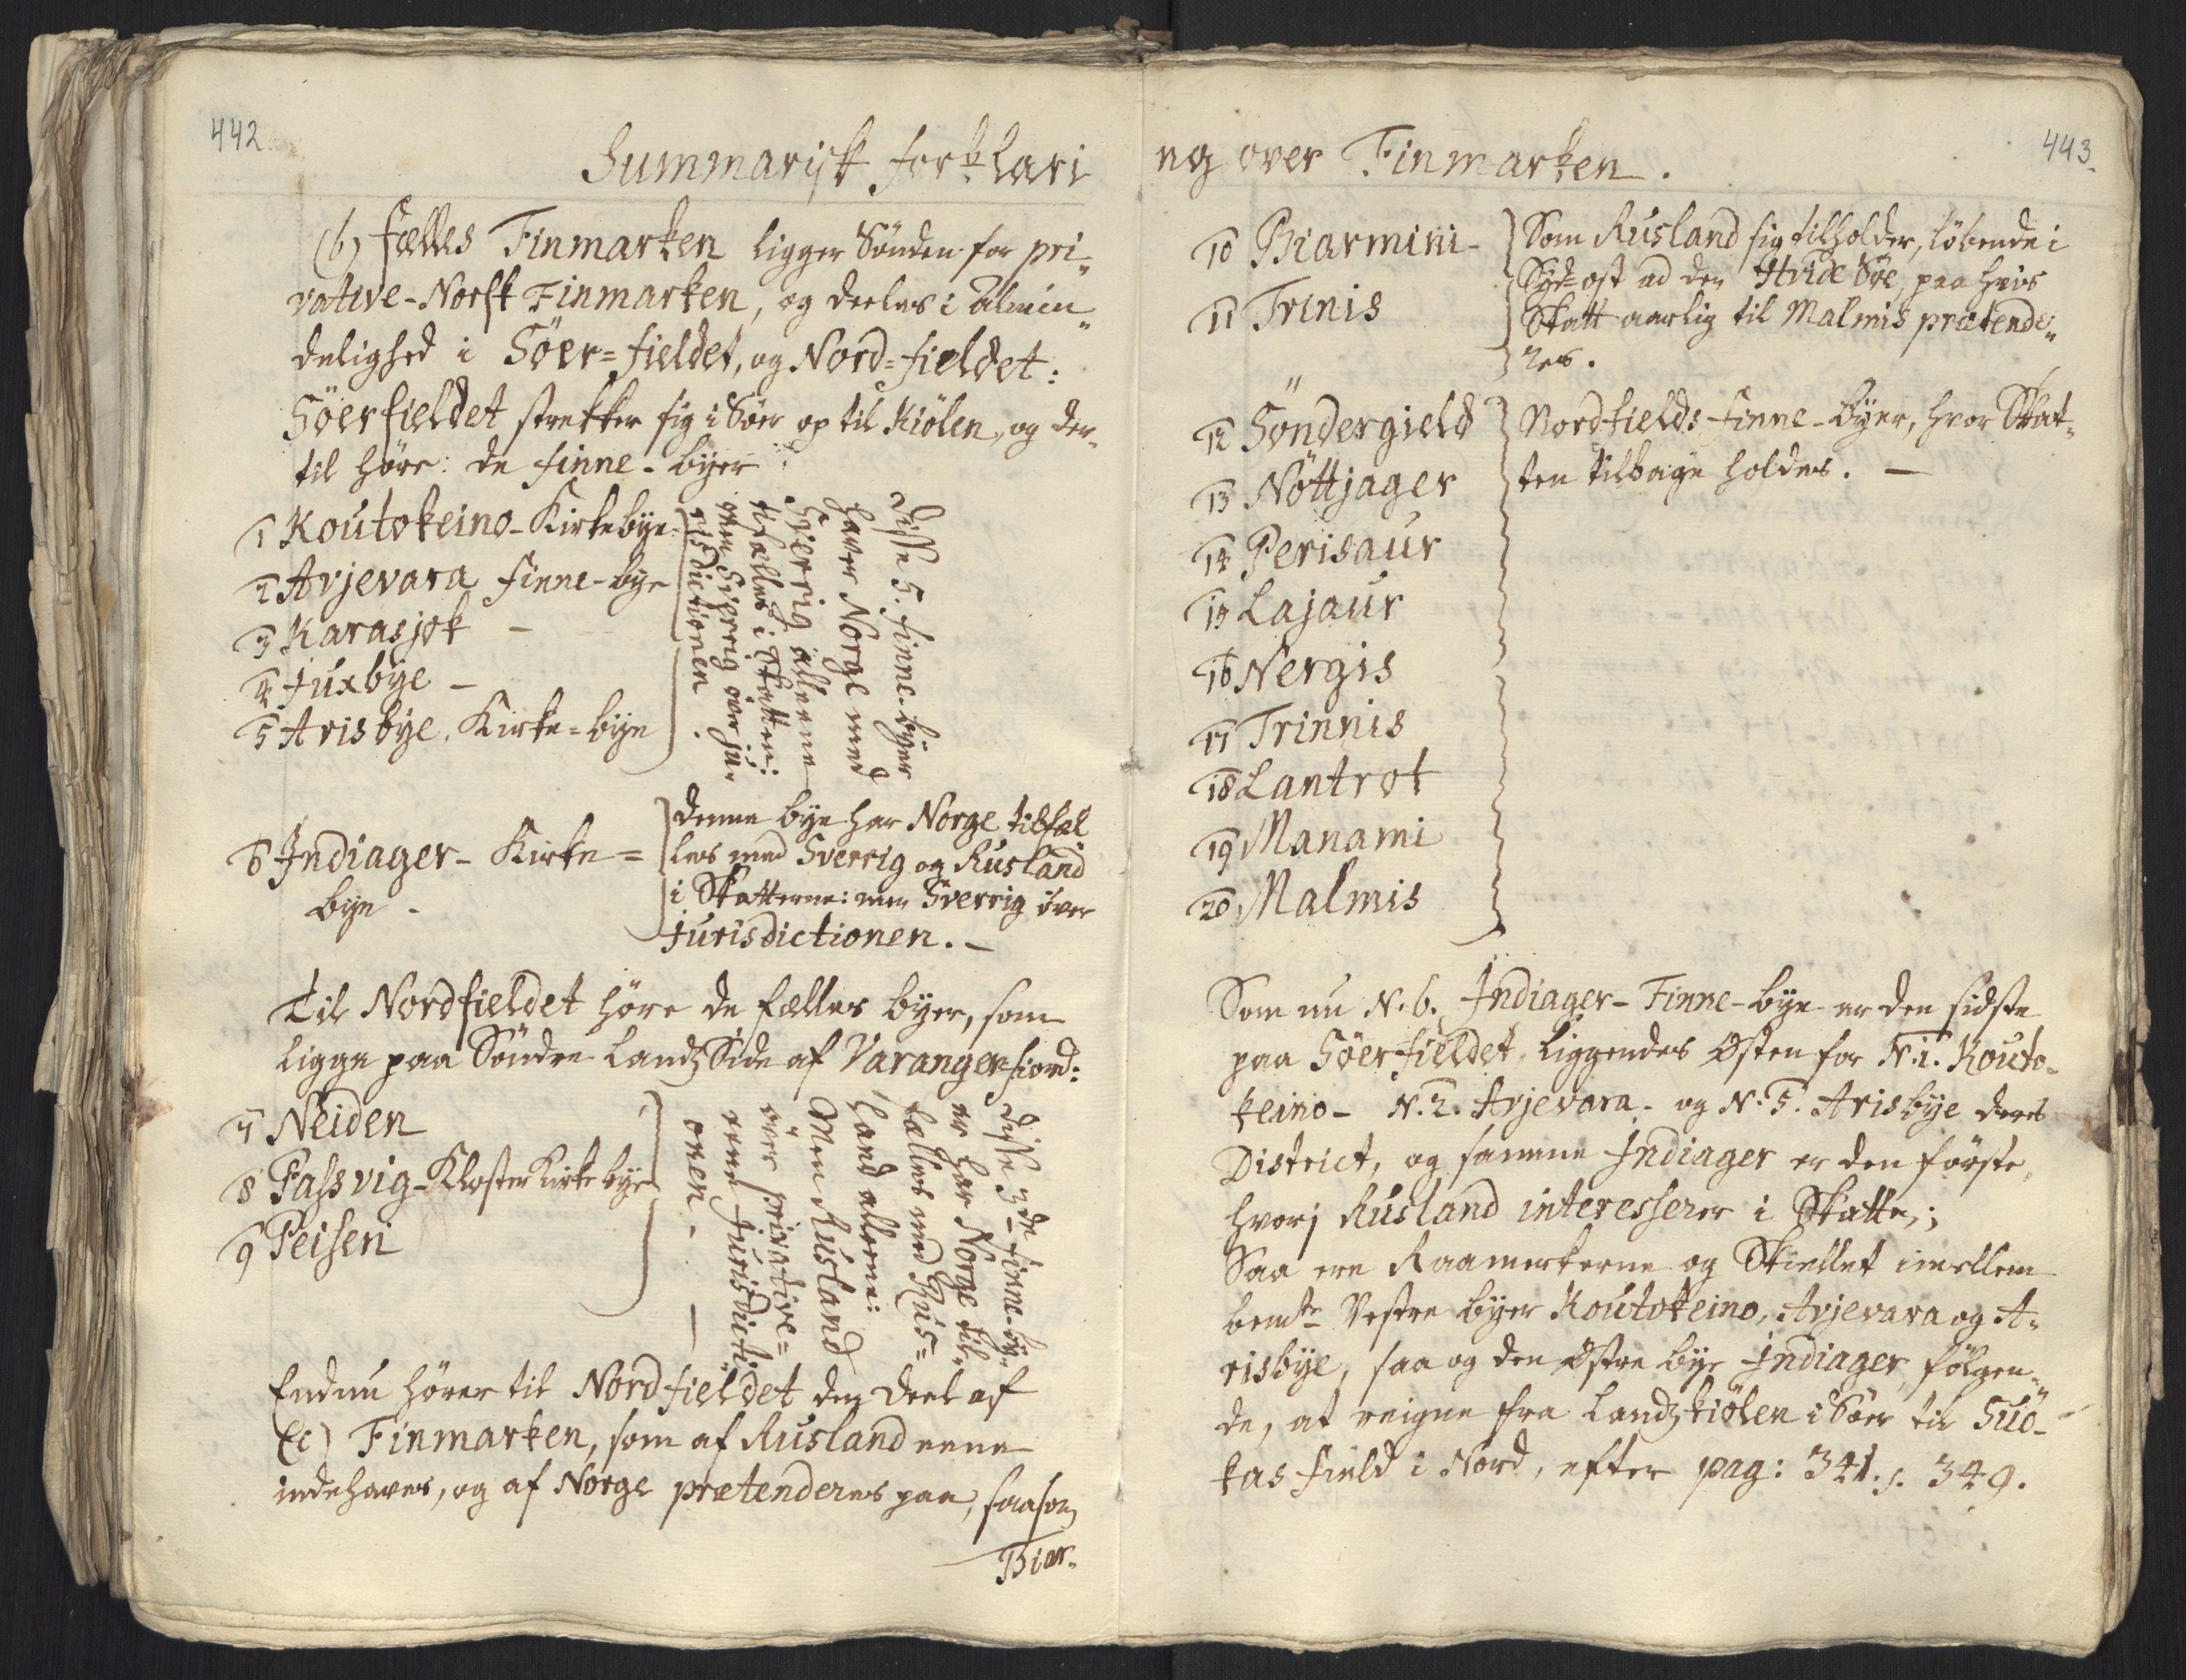 442
Summarisk forklari
(b) fælles Finmarken ligger Sønden for pri„
vative-Norsk Finmarken, og deeles i Almin„
delighed i Söer=fieldet, og Nord=fieldet:
Söerfieldet strekker sig i Söer op til Kiölen, og der„
til høre: de finne-byer:
1 Koutokeino-Kirkebye
2 Avjevara finne-bye
3 Karasjok —
4 Juxbye —
5 Arisbye. Kirke=bye
disse 5. finne-byer
haver Norge med
Sverrig alleene
tilfælles i skatten:
men Sverrig över ju„
risdictionen.
6 Indiager- Kirke=
bye -
denne bye har Norge tilfæl„
les med Sverrig og Rusland
i Skatterne: men Sverrig över
Jurisdictionen. —
Til Nordfieldet höre de fælles byer, som
ligge paa Söndre Landz Side af Varangerfiord:
7 Neiden
8 Passvig-Kloster Kirke bye
9 Peisen
disse 3de finne-by„
er har Norge til„
fælles med Rus=
land alleene:
Men Rusland
över privative=
rne Jurisdicti„
onen. —
Endnu hörer til Nordfieldet den deel af
(c) Finmarken, som af Rusland eene
indehaves, og af Norge prætenderes paa, saasom
Biar„
443.
ng over Finmarken.
10 Biarmini-
11 Trinis
Som Rusland sig tilholder, löbende i
Syd=ost ad den Hvide Söe, paa hvis
Skatt aarlig til Malmis prætende„
res.
12 Söndergield
13 Nöttjager
14 Perisaur
15 Lajaur
16 Nergis
17 Trinnis
18 Lantrot
19 Manami
20 Malmis
Nordfields finne-byer, hvor Skat„
ten tilbage holdes. —
Som nu N. 6. Indiager-Finne-bye er den sidste
paa Söerfieldet, liggendes Østen for N. 1. Kouto„
keino- N. 2. Avjevara- og N. 5. Arisbye deres
District, og samme Indiager er den förste,
hvorj Rusland interesserer i Skatte,;
Saa ere Raamerkerne og Skiellet imellem
bemte Vestre byer Koutokeino, Avjevara og A„
risbye, saa og den østre bye Indiager fölgen„
de, at reigne fra Landzkiölen i Söer til Suo-
kas field i Nord, efter pag: 341. s. 349.